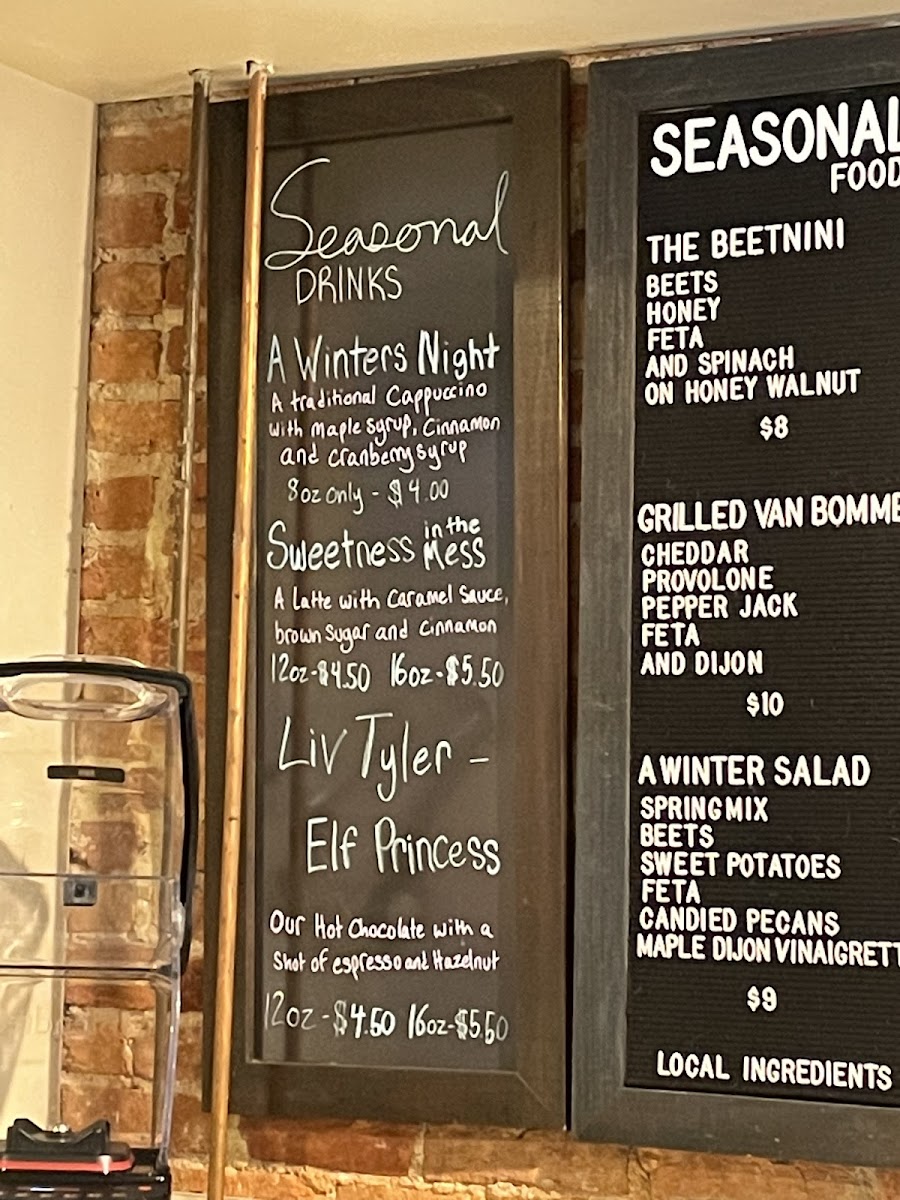 Seasonal
DRINKS
A Winters Night
A traditional Cappuccino
with maple syrup, Cinnamon
and cranberry syrup
8oz only - $4.00
Sweetness in the Mess
A Latte with Caramel Sauce,
brown Sugar and Cinnamon
12oz-$4.50 16oz-$5.50
Liv Tyler -
Elf Princess
Our Hot Chocolate with a
Shot of espresso and Hazelnut
12oz-$4.50 16oz-$5.50
SEASONAL
FOOD
THE BEETNINI
BEETS
HONEY
FETA
AND SPINACH
ON HONEY WALNUT
$8
GRILLED VAN BOMME
CHEDDAR
PROVOLONE
PEPPER JACK
FETA
AND DIJON
$10
A WINTER SALAD
SPRING MIX
BEETS
SWEET POTATOES
FETA
CANDIED PECANS
MAPLE DIJON VINAIGRETT
$9
LOCAL INGREDIENTS